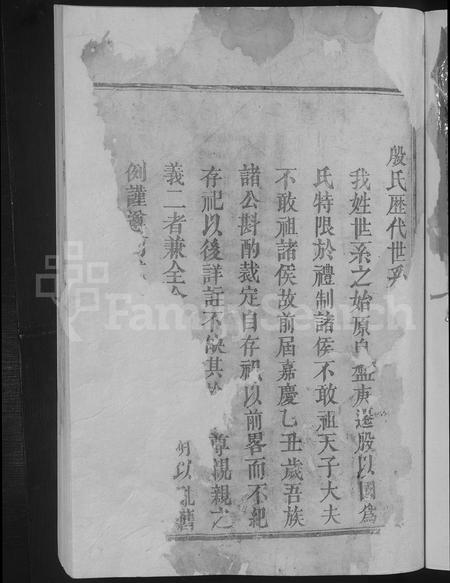 殷氏歷代世系
我姓世系之始原自盤庚遷殷以國為
氏特限於禮制諸侯不敢祖天子大夫
不敢祖諸侯故前屆嘉慶乙丑歲吾族
諸公斟酌裁定自存祀以前畧而不紀
存祀以後詳註不缺其於 尊視親之
義二者兼全今 以
例謹遵
FamilySearch